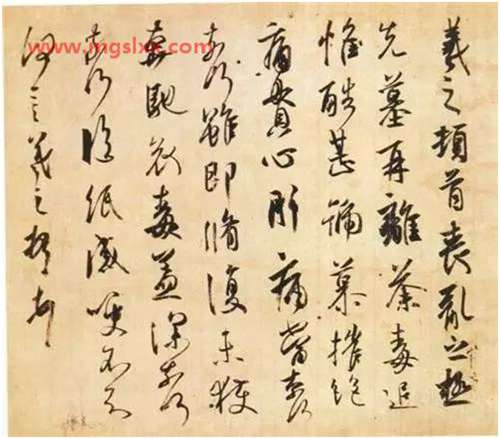 www.mgslxx.com
羲之頓首喪亂之極
先墓再離荼毒追
惟酷甚號慕摧絕
痛貫心肝痛當奈何
奈何雖即脩復未獲
奔馳哀毒益深奈何
奈何臨紙感哽不知
何言羲之頓首頓首